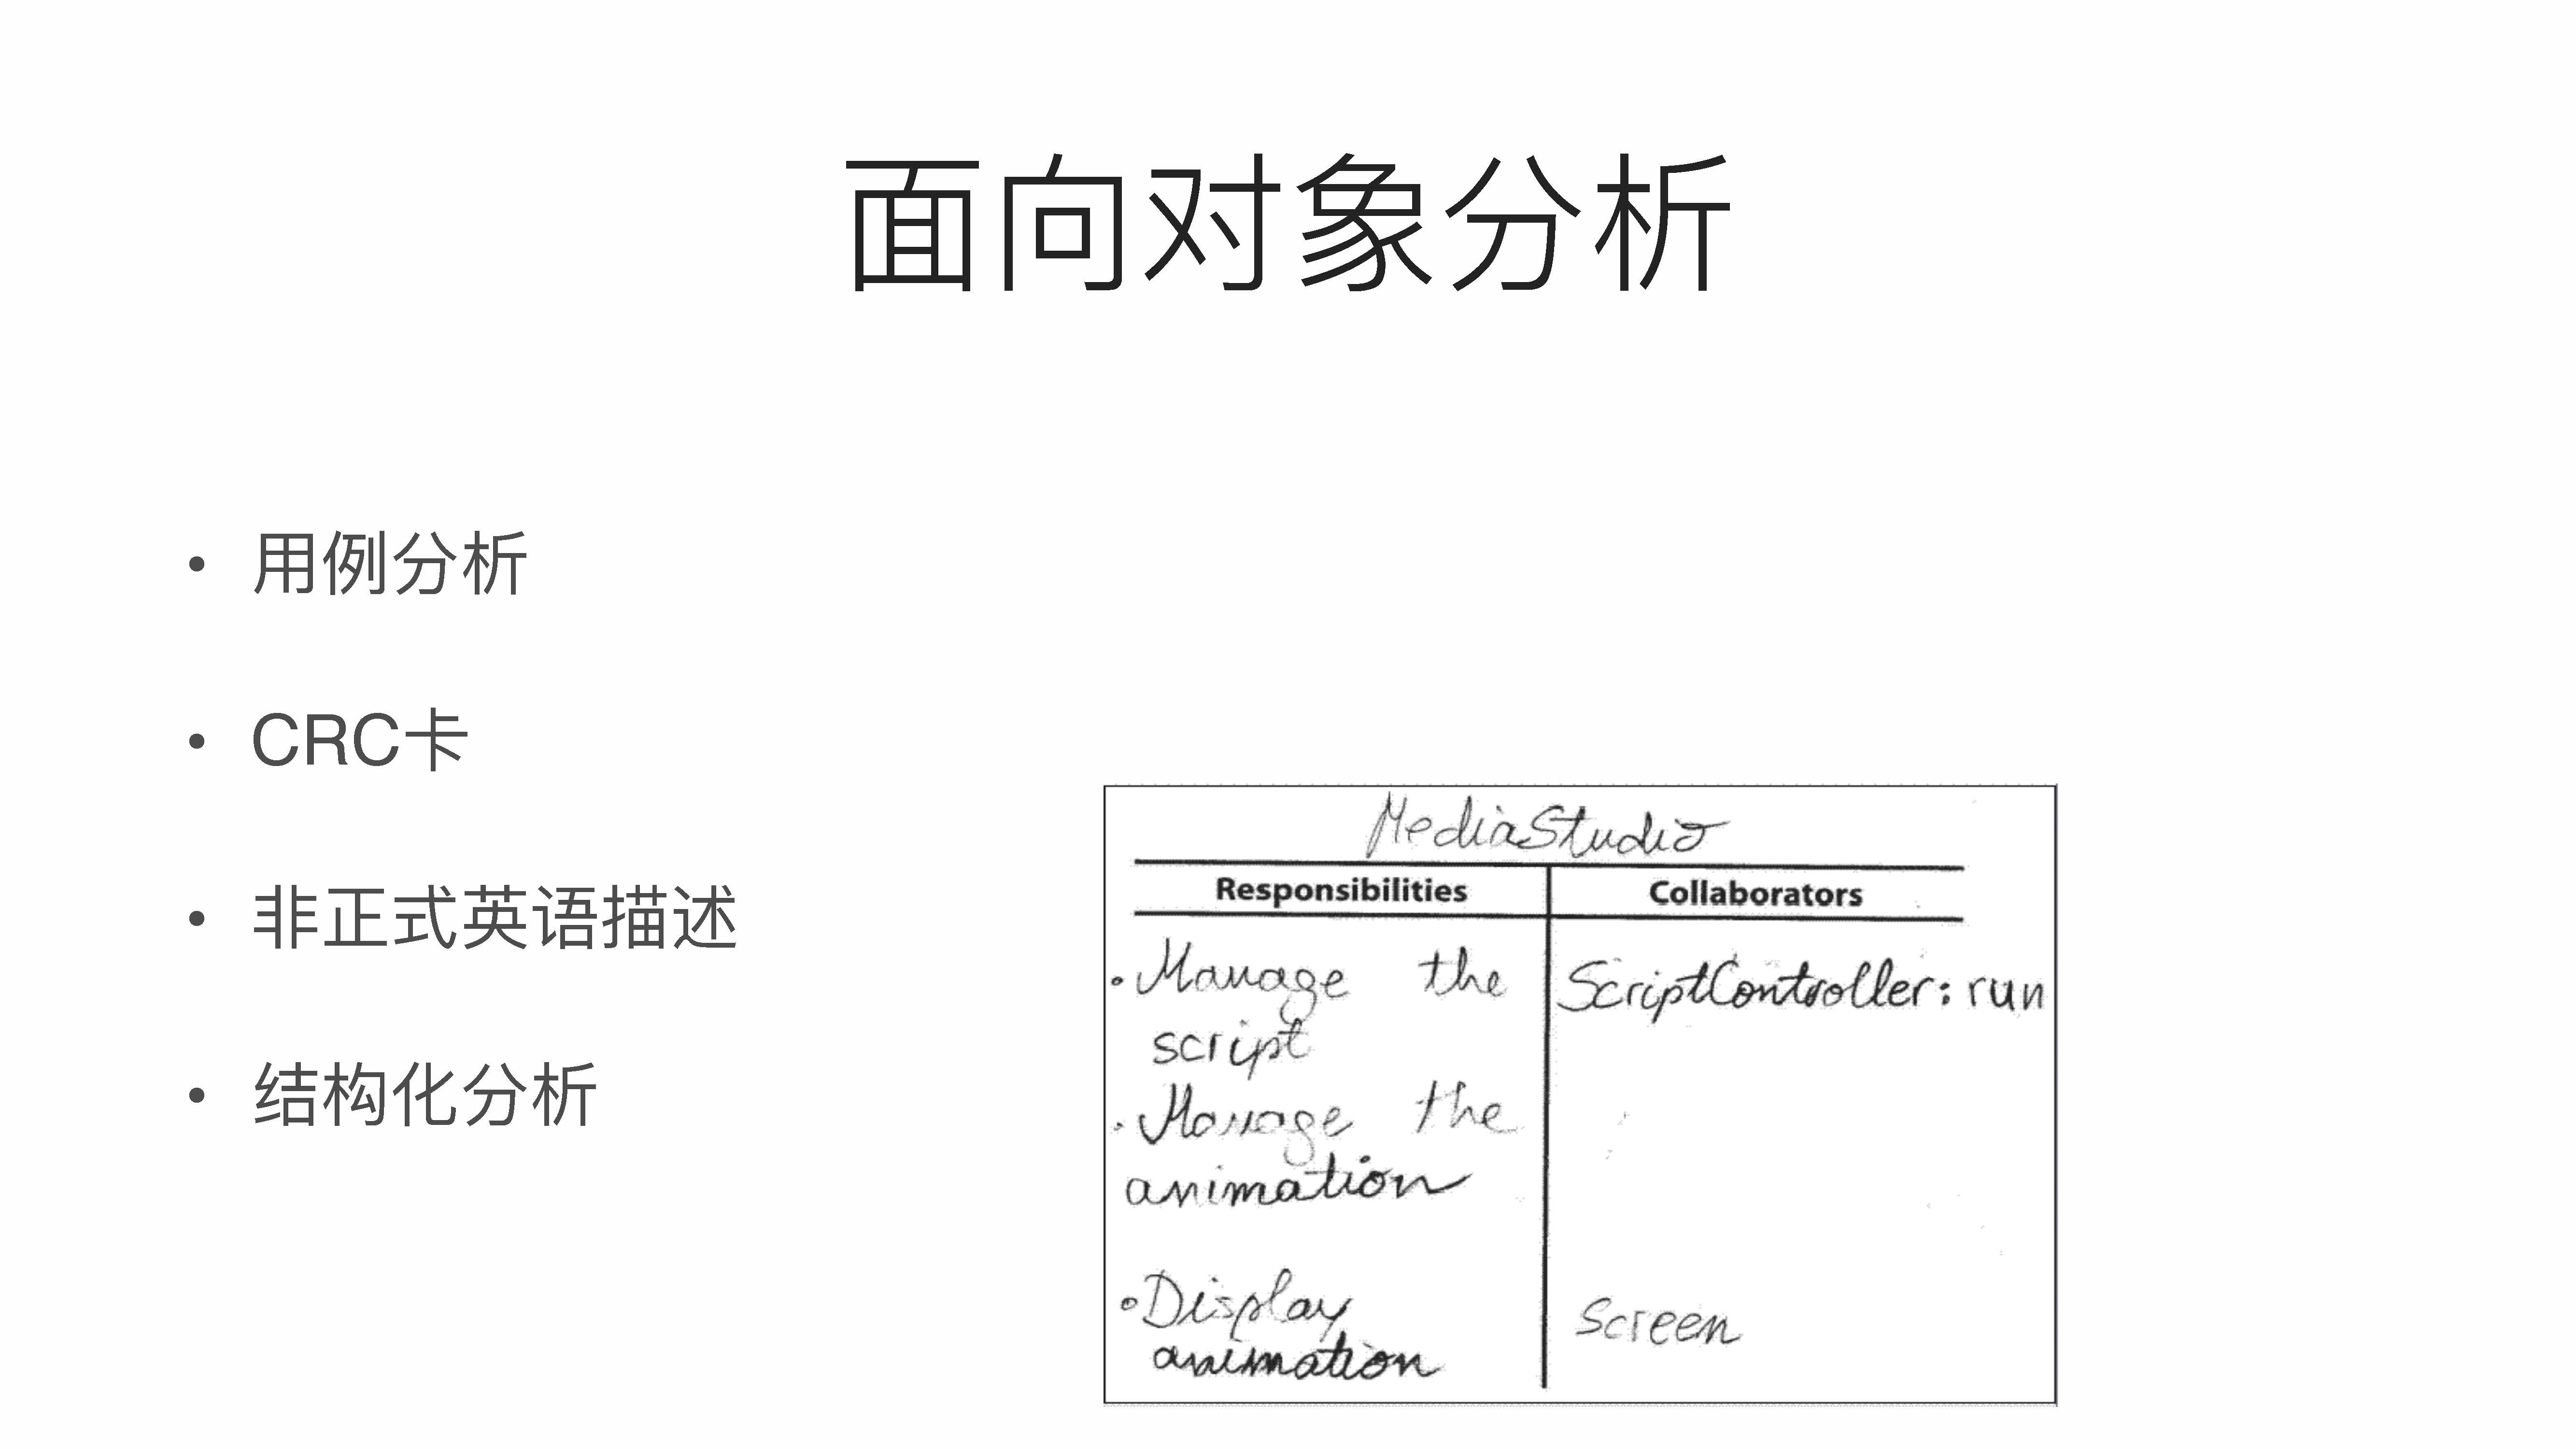 面向对象分析
• 用例分析
• CRC卡
• 非正式英语描述
• 结构化分析
MediaStudio
Responsibilities Collaborators
• Manage the ScriptController: run
script
• Manage the
animation
• Display Screen
animation